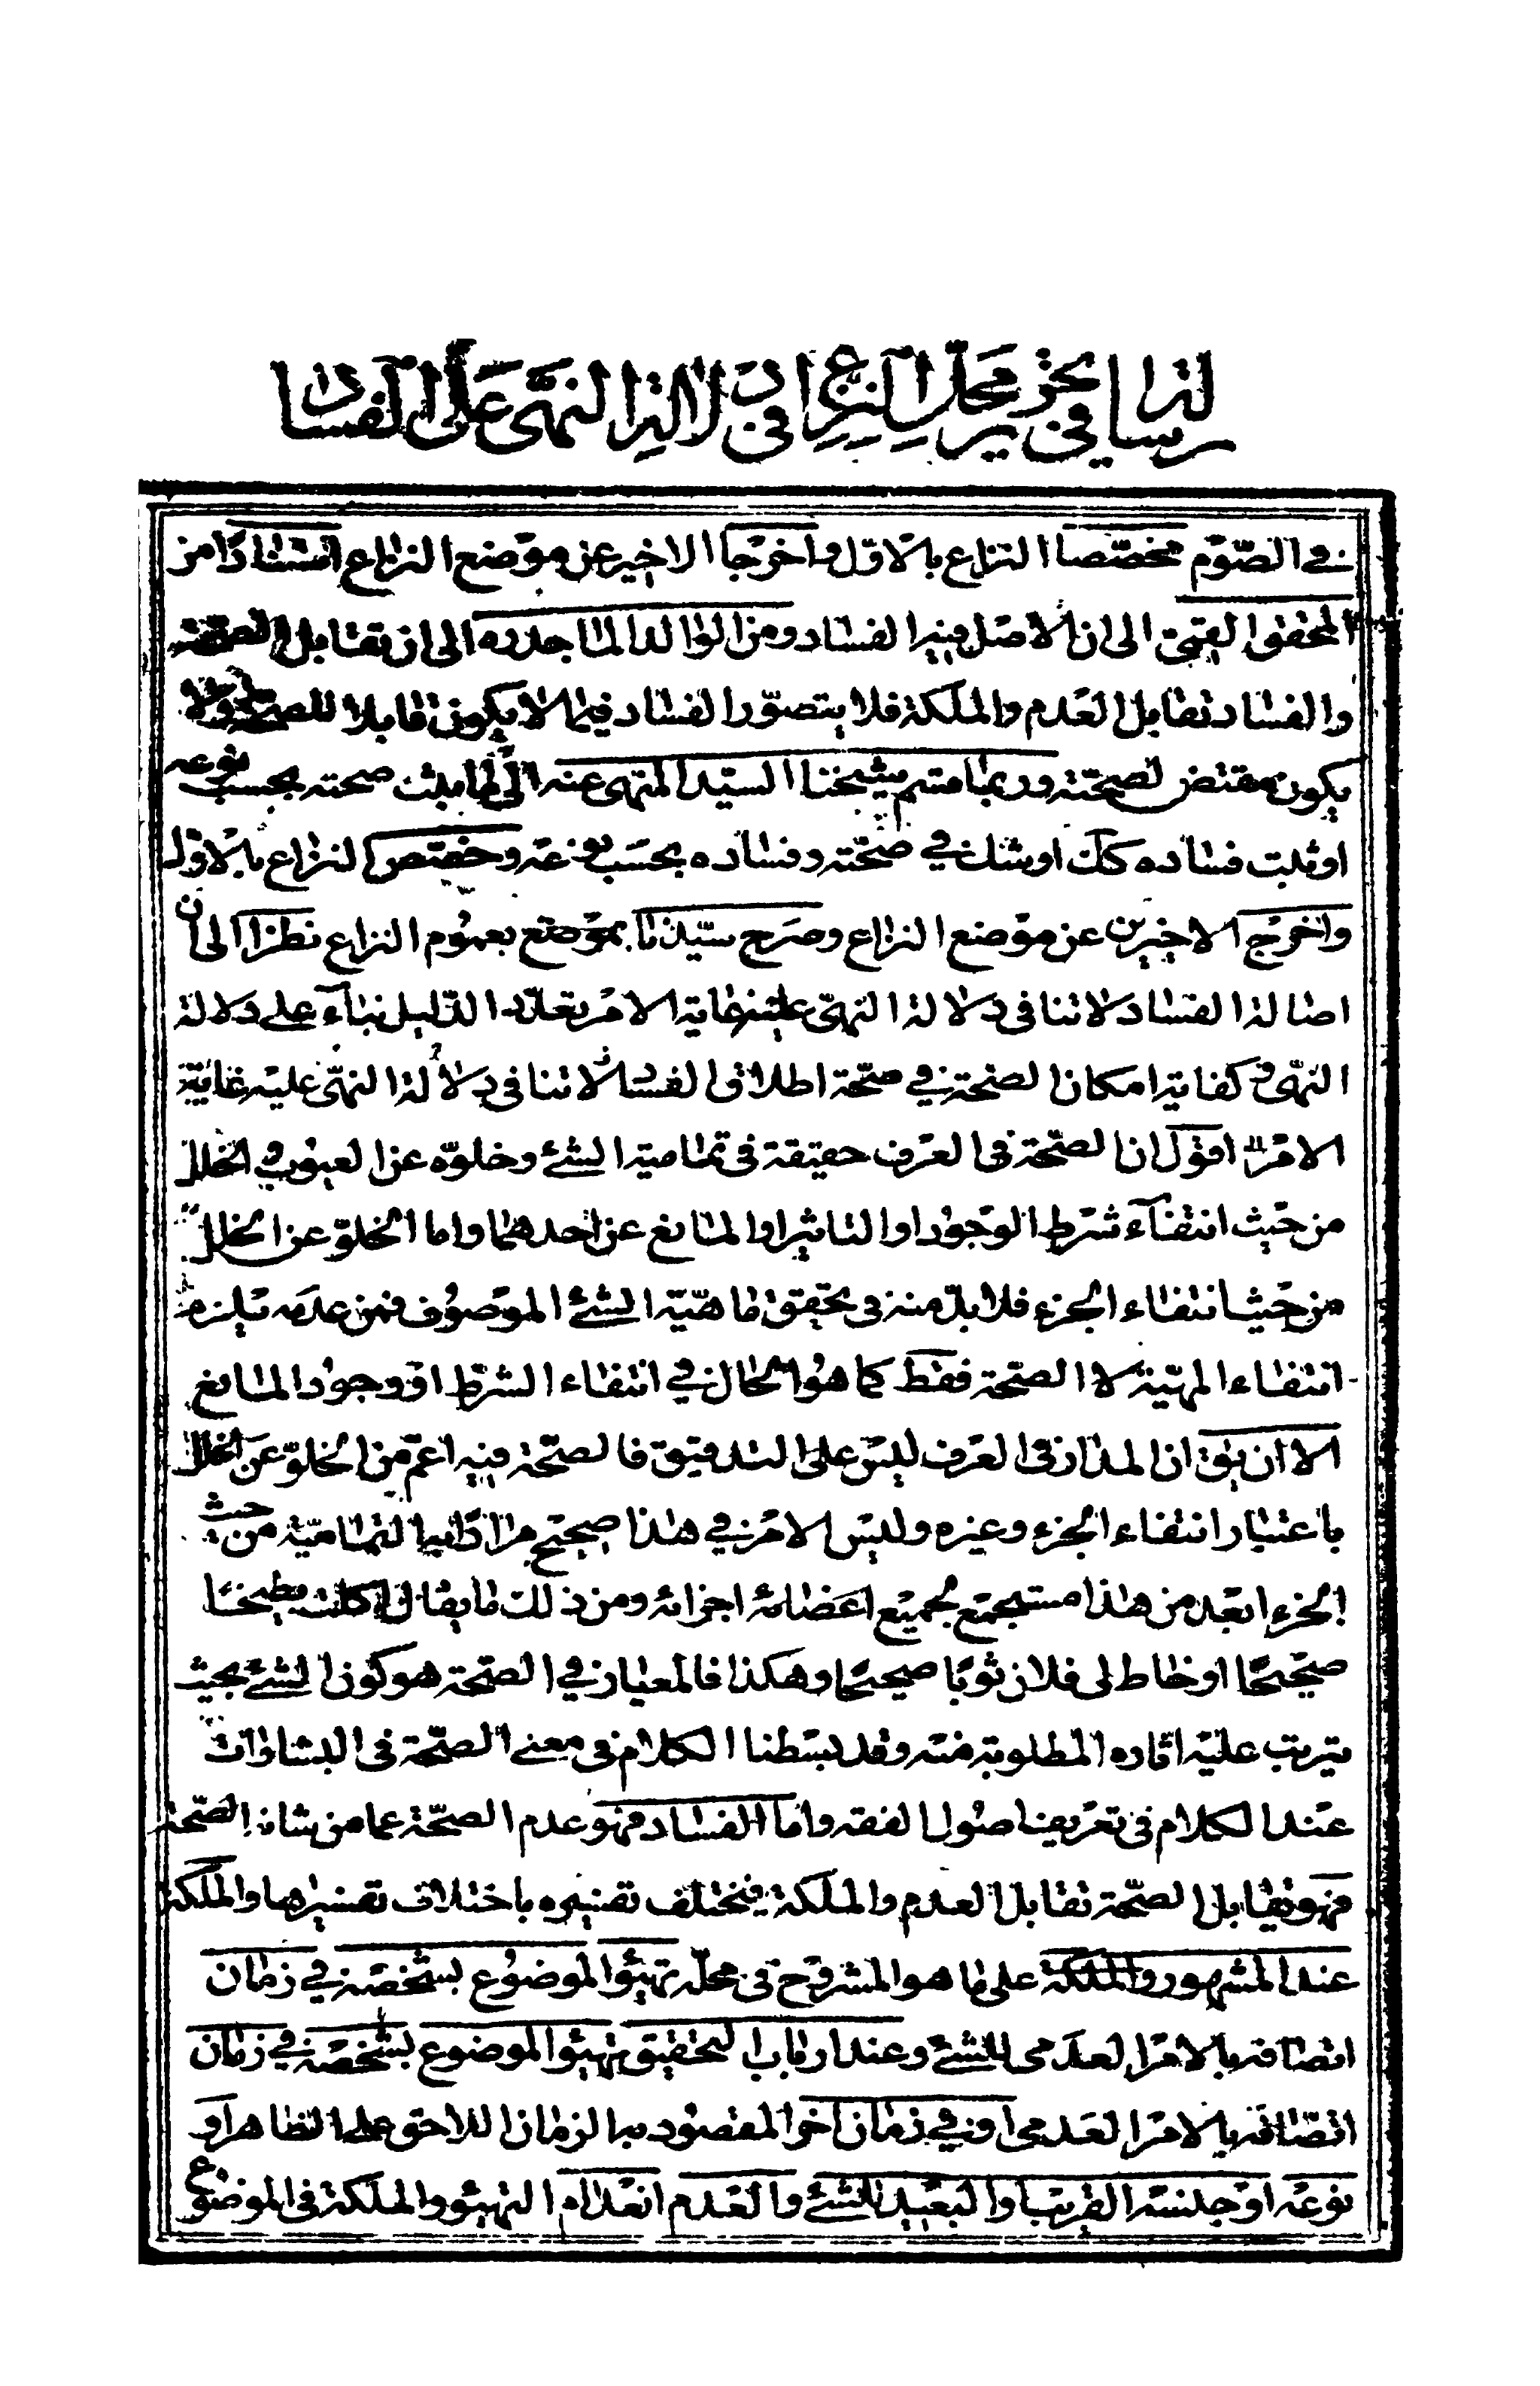 رسالة في تحرير محل النزاع في دلالة النهى على الفساد
في الصوم مخصصا النزاع بالاول واخرجا الاخير عن موضع النزاع استنادا من
المحقق القمى الى ان الاصل فيه الفساد ومن الوالد الماجد ره الى ان تقابل الصحة
والفساد تقابل العدم والملكة فلا يتصور الفساد فيما لا يكون قابلا للصحة ولا
يكون مقتض لصحته وربما قسم شيخنا السيد المنهى عنه الى ما يثبت صحته بحسب نوعه
او ثبت فساده كك او شك في صحته وفساده بحسب نوعه وخصص النزاع بالاول
واخرج الاخيرين عن موضع النزاع وصرح سيدنا بموضع بعموم النزاع نظرا الى ان
اصالة الفساد لا تنافى دلالة النهى عليه غاية الامر تعدد الدليل بناء على دلالة
النهى و كفاية امكان الصحة في صحة اطلاق الفساد لا تنافى دلالة النهى عليه غاية
الامر اقول ان الصحة في العرف حقيقة في تمامية الشئ وخلوه عن العيوب و الخلل
من حيث انتفاء شرط الوجود او التاثير او المانع عن احدهما واما الخلو عن الخلل
من حيث انتفاء الجزء فلا بد منه في تحقق ماهية الشئ الموصوف فمن عدمه يلزم
انتفاء المهية لا الصحة فقط كما هو الحال في انتفاء الشرط او وجود المانع
الا ان يق ان المدار في العرف ليس على التدقيق فالصحة فيه اعم من الخلو عن الخلل
باعتبار انتفاء الجزء وغيره وليس الامر في هذا صحيح مرادا به التمامية من حيث
الجزء ابعد من هذا مستجمع لجميع اعضائه اجزائه ومن ذلك ما يقال اكلت بطيخا
صحيحا او خاط لى فلان ثوبا صحيحا وهكذا فالمعيار في الصحة هو كون الشئ بحيث
يترتب عليه اثاره المطلوبة منه وقد بسطنا الكلام في معنى الصحة في البشارات
عند الكلام في تعريف اصول الفقه واما الفساد فهو عدم الصحة عما من شانه الصحة
فهو يقابل الصحة تقابل العدم والملكة فيختلف تفسيره باختلاف تفسيرها والملكة
عند المشهور والملكة على ما هو المشروح في محله تهيئو الموضوع بشخصه في زمان
اتصافه بالامر العدمى للشئ وعند ارباب التحقيق تهيئو الموضوع بشخصه في زمان
اتصافه بالامر العدمى او في زمان اخر المقصود به الزمان اللاحق على الظاهر او
نوعه او جنسه القريب او البعيد للشئ والعدم انعدام التهيئو والملكة في الموضوع